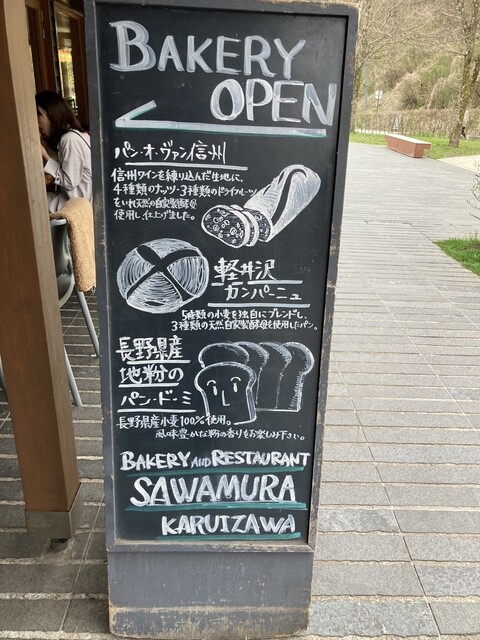 BAKERY
OPEN
パン・オ・ヴァン信州
信州ワインを練り込んだ生地に、
4種類のナッツ・3種類のドライフルーツ
をいれ天然の自家製酵母
使用し仕上げました。
軽井沢
カンパーニュ
5種類の小麦を独自にブレンドし、
3種類の天然自家製酵母を使用したパン。
長野県産
地粉の
パン・ド・ミ
長野県産小麦100%使用。
風味豊かな粉の香りをお楽しみ下さい。
BAKERY AND RESTAURANT
SAWAMURA
KARUIZAWA